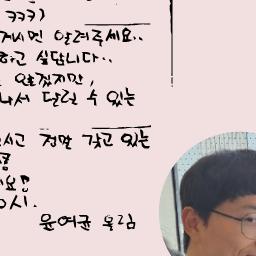 ㅋㅋㅋ)
계시면 알려주세요..
하고 싶답니다..
않겠지만,
나서 달릴 수 있는
시고 정말 갖고 있는
요!
시.
윤여균 올림